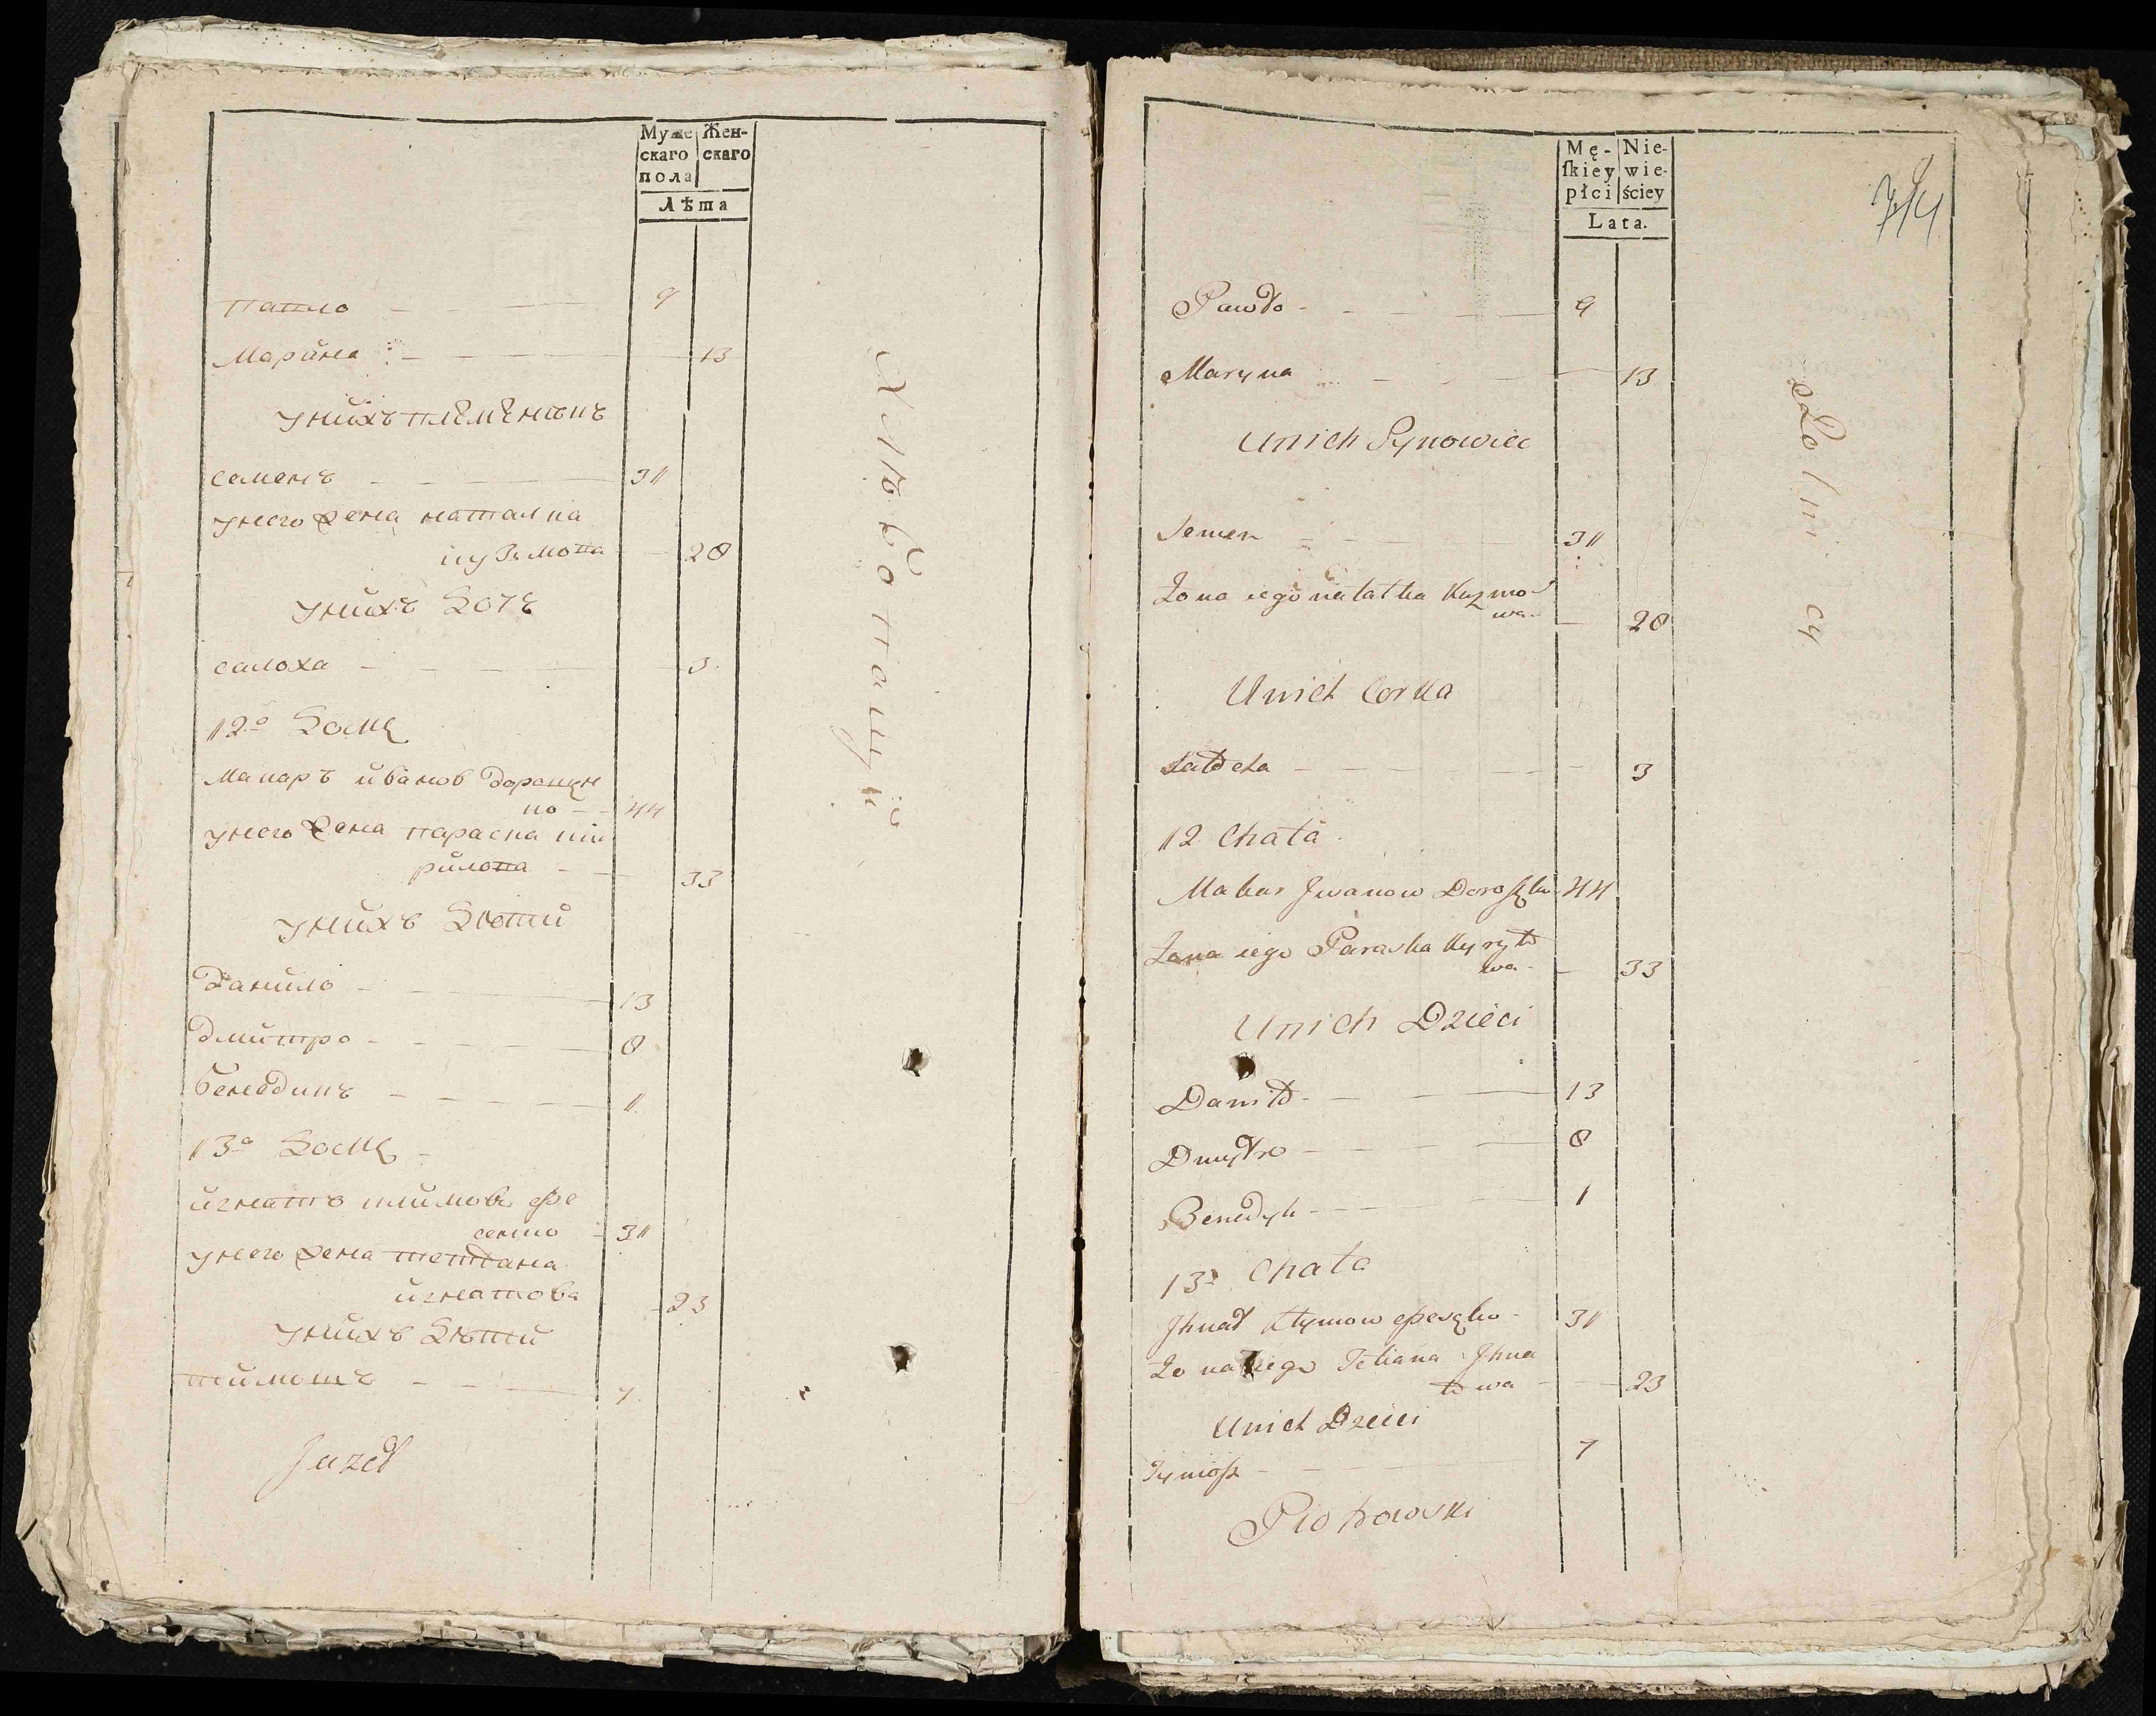 Муже
скаго
пола
Жен-
скаго
Лѣта
павло 9
марина 13
Унихъ племеникъ
семенъ 31
Унего жена наталка
кузмова 28
Унихъ дочь
салоха 3
12й домъ
макаръ иванов дорошен
ко 44
Унего жена параска ки
рилова 33
Унихъ дѣти
данило 13
дмитро 8
бенедикъ 1
13й домъ
игнатъ климовъ фе
сенко 31
Унего жена тетіана
игнатова 23
Унихъ дѣти
тимошъ 7
Juzef
Хлѣбопашцы
Mę-
ſkiey
płci
Nie-
wie-
ściey
Lata.
74
Pawło 9
Maryna 13
Unich Synowiec
Semen 31
Żona iego natałka Kuzmo
wa 28
Unich Corka
Sałocha 3
12 Chata
Makar Jwanow Doroszko 44
Żona iego Paraska Kyryło
wa 33
Unich Dzieci
Daniło 13
Dmytro 8
Benedyk 1
13a Chata
Jhnat Kłymow fesęko 31
Żona iego Tetiana Jhna
towa 23
Unich Dzieci
Tymosz 7
Piotrowski
Rolnicy